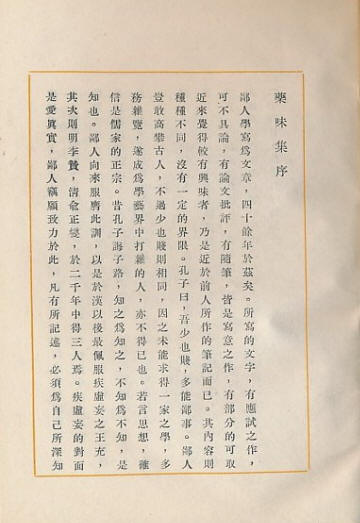 藥味集序
鄙人學寫爲文章，四十餘年於茲矣。所寫的文字，有應試之作，
可不具論，有論文批評，有隨筆，皆是寫意之作，有部分的可取
近來覺得較有興味者，乃是近於前人所作的筆記而已。其內容則
種種不同，沒有一定的界限。孔子曰，吾少也賤，多能鄙事。鄙人
豈敢高攀古人，不過少也賤則相同，因之未能求得一家之學，多
務雜覽，遂成爲學藝界中打雜的人，亦不得已也。若言思想，確
信是儒家的正宗。昔孔子誨子路，知之爲知之，不知爲不知，是
知也。鄙人向來服膺此訓，以是於漢以後最佩服疾虛妄之王充，
其次則明李贄，清兪正燮，於二千年中得三人焉。疾虛妄的對面
是愛眞實，鄙人竊願致力於此，凡有所記述，必須爲自己所深知